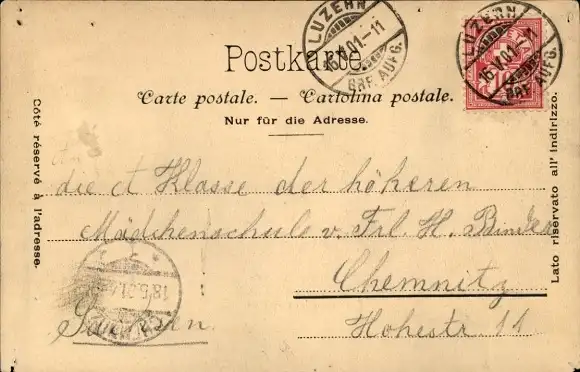 Postkarte.
Carte postale. — Cartolina postale.
Nur für die Adresse.
Côté réservé à l'adresse.
Lato riservato all' indirizzo.
LUZERN
16.V.01.-11
BRF. AUFG.
LUZERN
16.V.01.-11
BRF. AUFG.
An
die ct Klasse der höheren
Mädchenschule v. Frl. H.
Chemnitz
Sachsen.
Hohestr 11
18.5.01.
CHEMNITZ